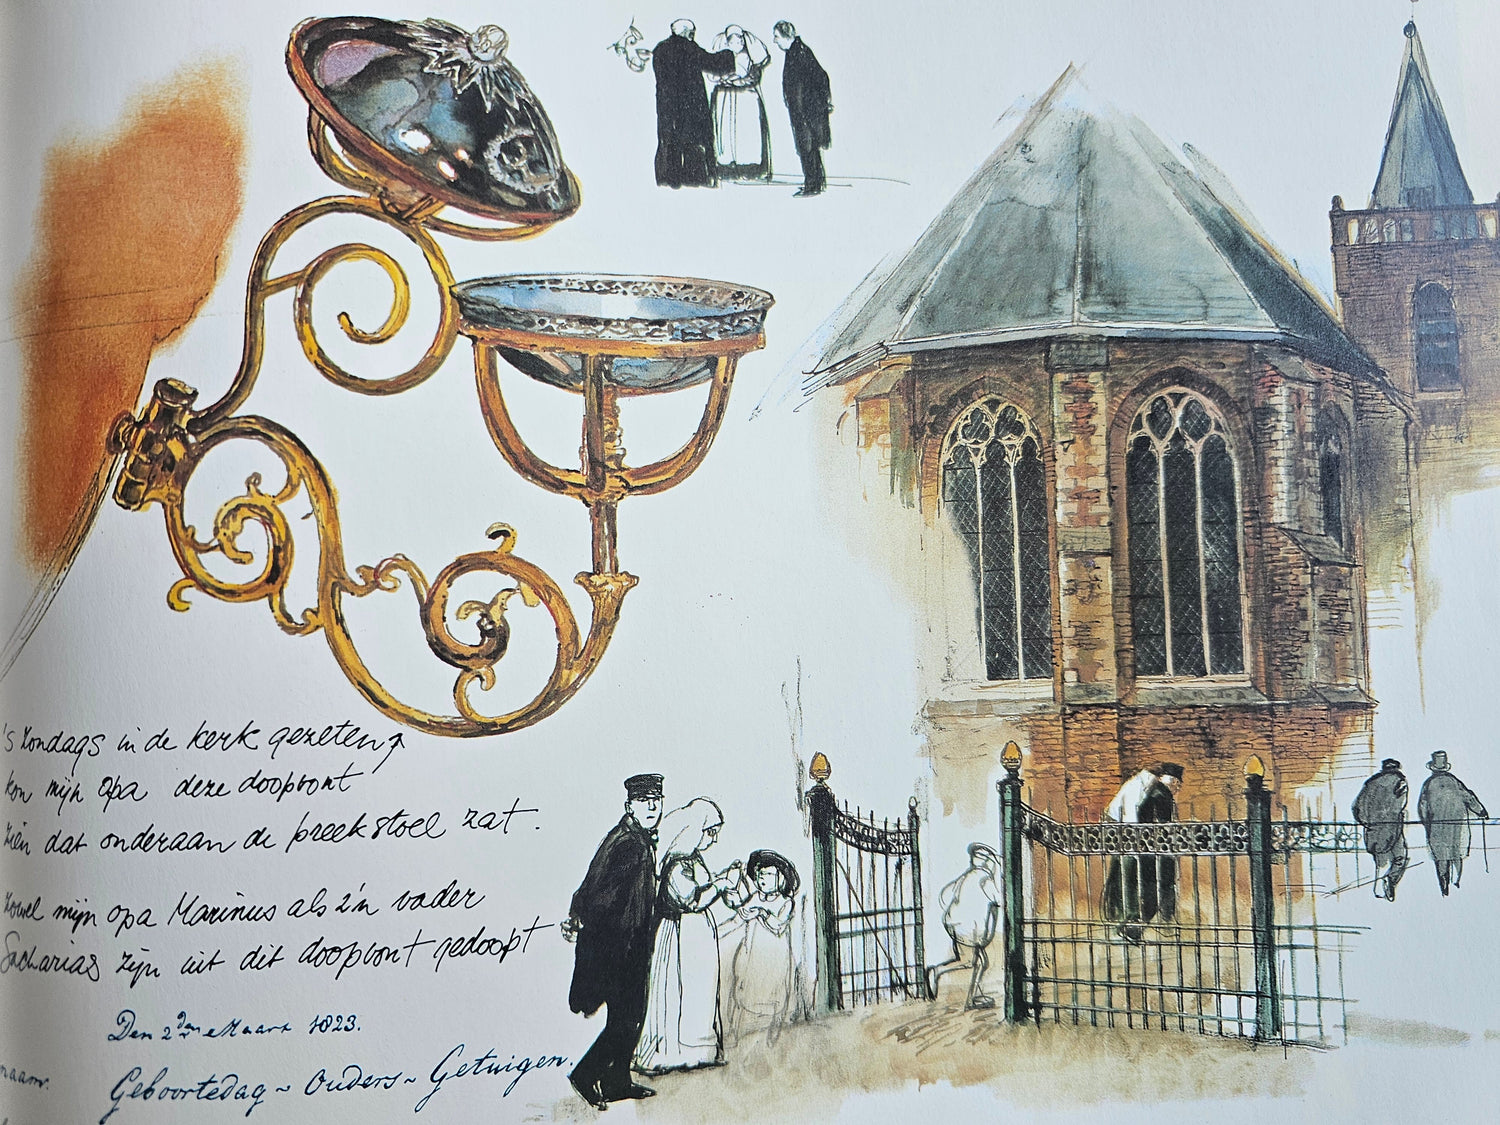 's zondags in de kerk gezeten,
kon mijn opa deze doopvont
zien dat onderaan de preekstoel zat.
Zowel mijn opa Marinus als z'n vader
Sacharias zijn uit dit doopvont gedoopt
Den 2den Maart 1823.
naam.
Geboortedag ~ Ouders ~ Getuigen.